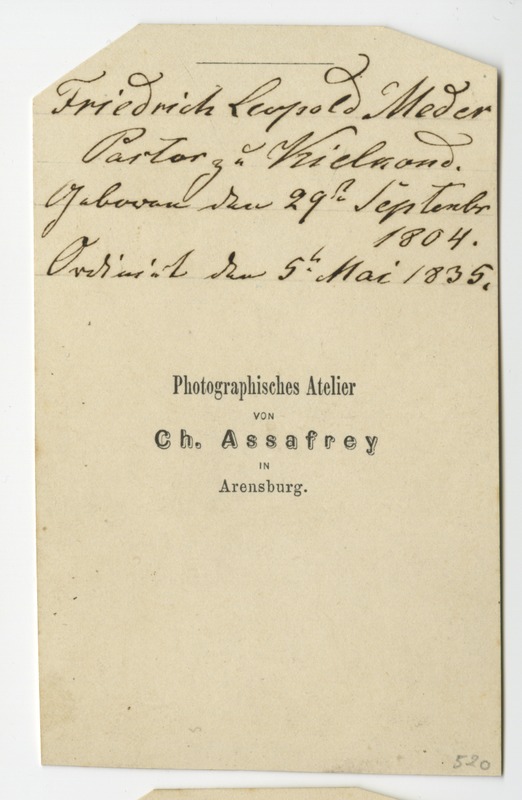 Friedrich Leopold Meder
Pastor zu Kielkond.
Geboren den 29st September
1804.
Ordinirt den 5t. Mai 1835.
Photographisches Atelier
VON
Ch. Assafrey
IN
Arensburg.
520